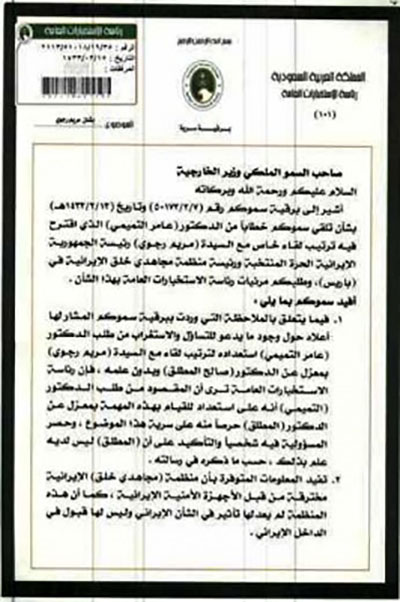 رئاسة الاستخبارات العامة
بسم الله الرحمن الرحيم
المملكة العربية السعودية
رئاسة الاستخبارات العامة
(١٠١)
الرقم :
التاريخ :
المرفقات :
برقية سرية
الموضوع
بشأن مريم رجوي
صاحب السمو الملكي وزير الخارجية
السلام عليكم ورحمة الله وبركاته
أشير إلى برقية سموكم رقم (٥٠١٧٣/٢/٧) وتاريخ (١٤٣٣/٢/١٣هـ)
بشأن تلقي سموكم خطاباً من الدكتور (عامر التميمي) الذي اقترح
فيه ترتيب لقاء خاص مع السيدة (مريم رجوي) رئيسة الجمهورية
الإيرانية الحرة المنتخبة ورئيسة منظمة مجاهدي خلق الإيرانية في
(باريس)، وطلبكم مرئيات رئاسة الاستخبارات العامة بهذا الشأن .
أفيد سموكم بما يلي :
١. فيما يتعلق بالملاحظة التي وردت ببرقية سموكم المشار لها
أعلاه حول وجود ما يدعو للتساؤل والاستغراب من طلب الدكتور
(عامر التميمي) استعداده لترتيب لقاء مع السيدة (مريم رجوي)
بمعزل عن الدكتور (صالح المطلق) وبدون علمه ، فإن رئاسة
الاستخبارات العامة ترى أن المقصود من طلب الدكتور
(التميمي) أنه على استعداد للقيام بهذه المهمة بمعزل عن
الدكتور (المطلق) حرصاً منه على سرية هذا الموضوع ، وحصر
المسؤولية فيه شخصياً والتأكيد على أن (المطلق) ليس لديه
علم بذلك ، حسب ما ذكره في رسالته .
٢. تفيد المعلومات المتوفرة بأن منظمة (مجاهدي خلق) الإيرانية
مخترقة من قبل الأجهزة الأمنية الإيرانية ، كما أن هذه
المنظمة لم يعد لها تأثير في الشأن الإيراني وليس لها قبول في
الداخل الإيراني .